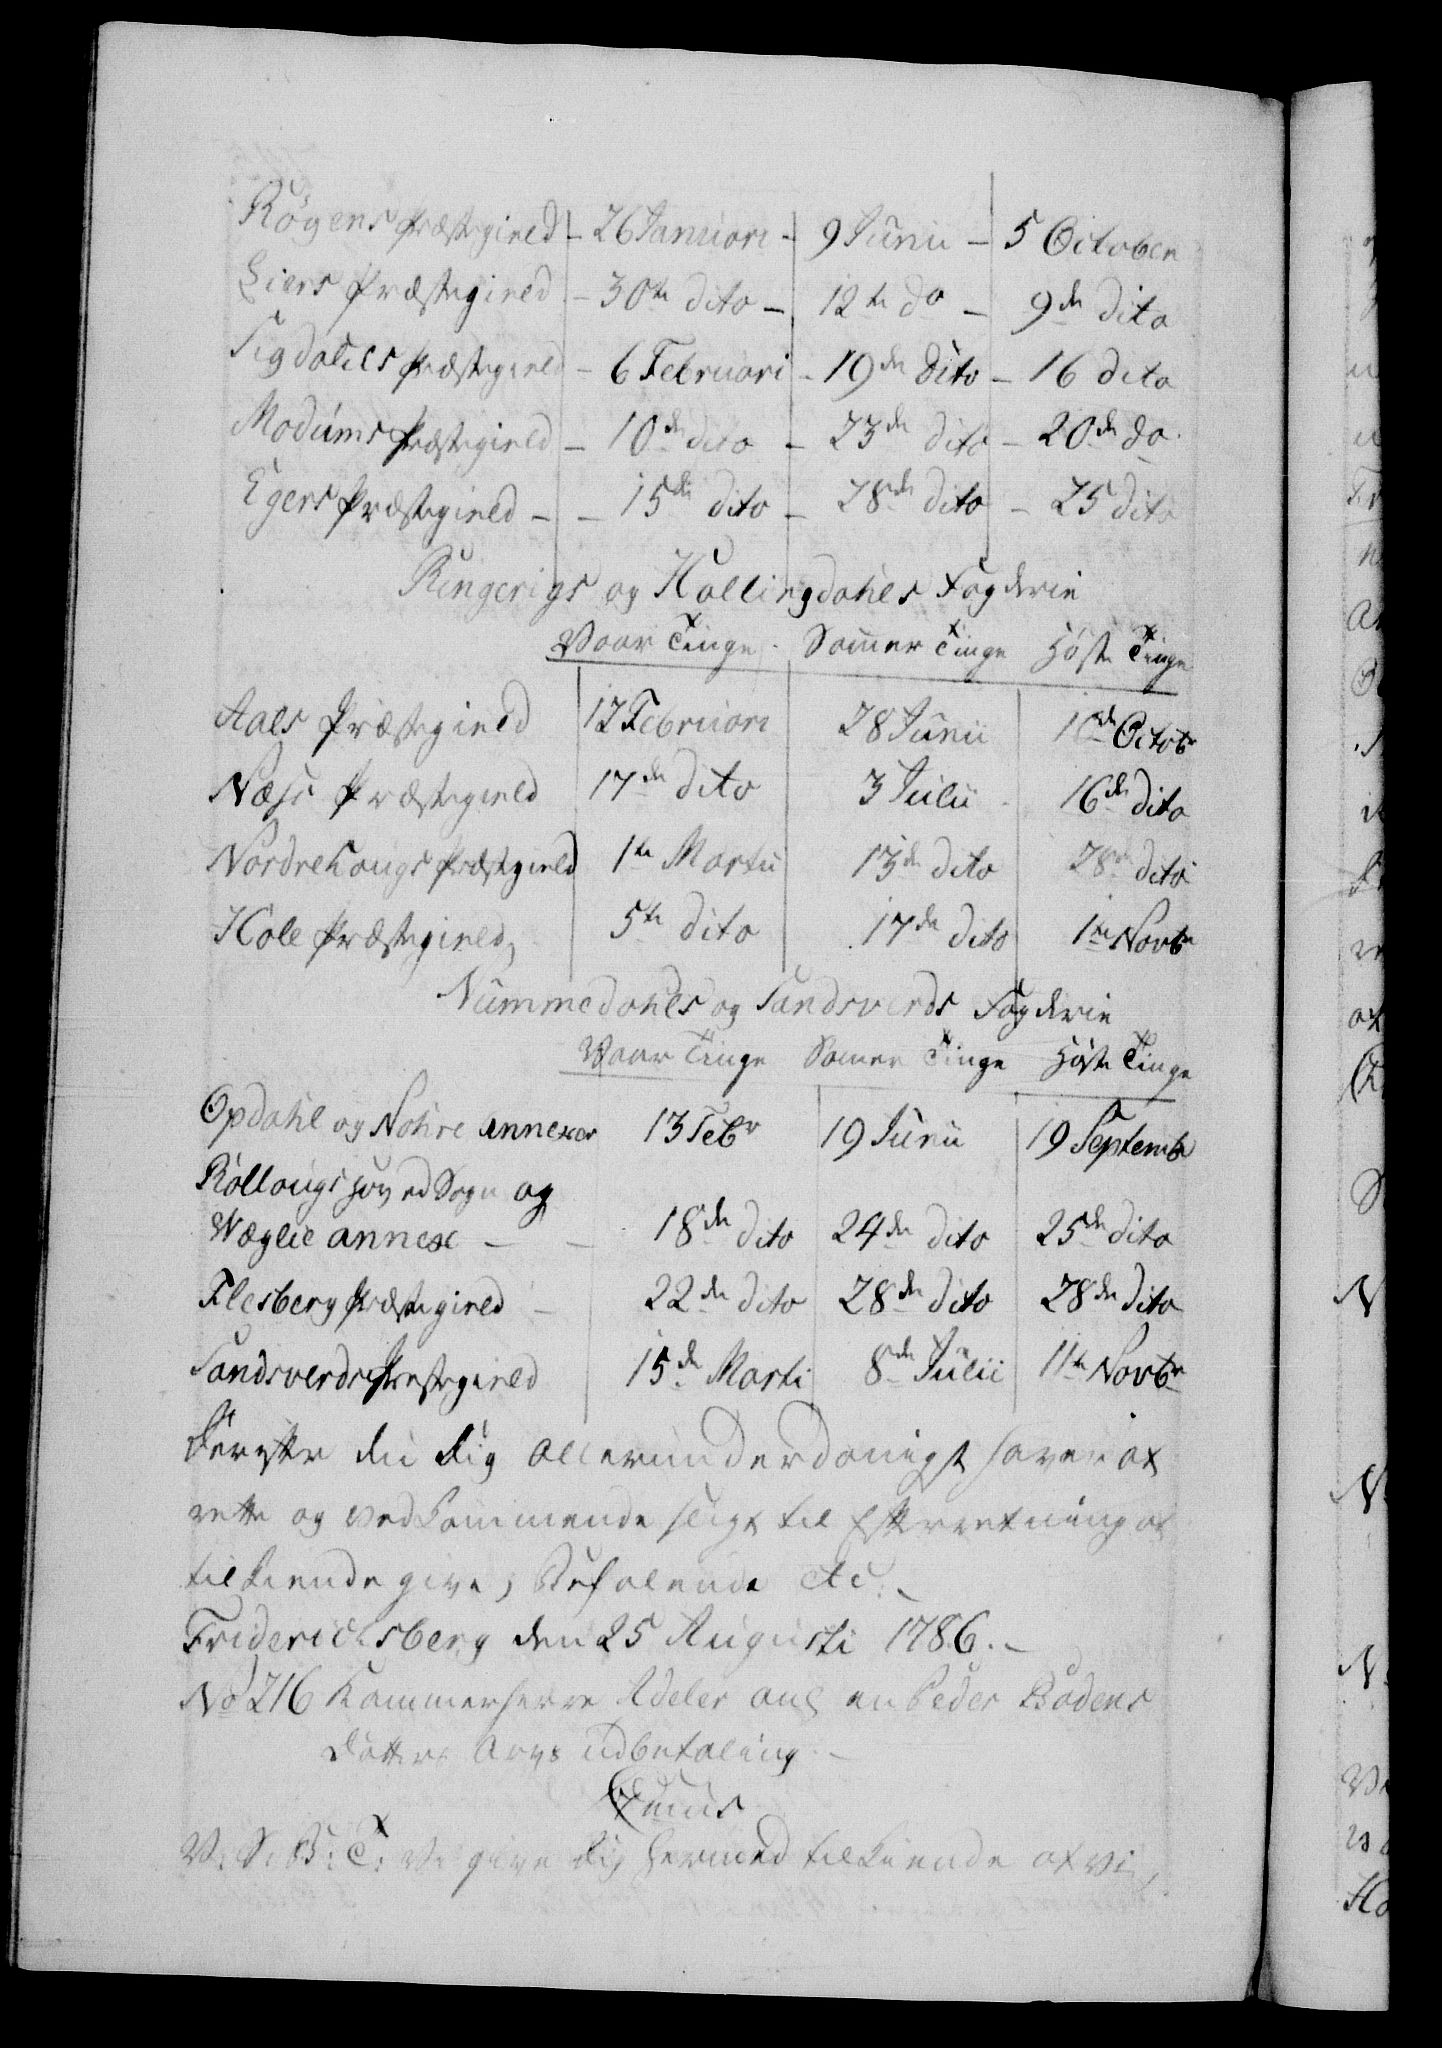 Røgens Præstegield – 26 Januari – 9 Junii – 5 October
Liers Præstegield – 30te dito – 12te do – 9de dito
Sigdahls Præstegield – 6 Februari – 19de dito – 16 dito
Modums Præstegield – 10de dito – 23de dito – 20de do.
Egers Præstegield – – 15de dito – 28de dito – 25 dito
Ringerigs og Hallingdahls Fogderie
Vaar Tinge. Somer Tinge Høste Tinge
Aals Præstegield 12 Februari 28 Junii Octobr
Næss Præstegield 17de dito 3 Julii 16de dito
Nordrehougs Præstegield 1te Martii 13de dito 28de dito
Hole Præstegield, 5te dito 17de dito 1te Novbr
Nummedahls og Sandsverds Fogderie
Vaar Tinge Somer Tinge Høste Tinge
Opdahl og Nohre annexer 13 Febr 19 Junii 19 Septembr
Rollougs Hoved Sogn og
Væglie annex – – 18de dito 24de dito 25de dito
Flesberg Præstegield – 22de dito 28de dito 28de dito
Sandsverds Præstegield 15de Marti 8de Julii 11te Novbr
Derefter du dig allerunderdanigst haver at
rette og vedkommende sligt til Efterretning at
tilkiende give, Befalende etc.
Fridericksberg den 25 Augusti 1786. –
No 216 Kammerherre Adeler ang en Peder Bodens
Datters Arvs udbetaling. –
V: S: B: T: Vi give dig hermed tilkiende at vi,